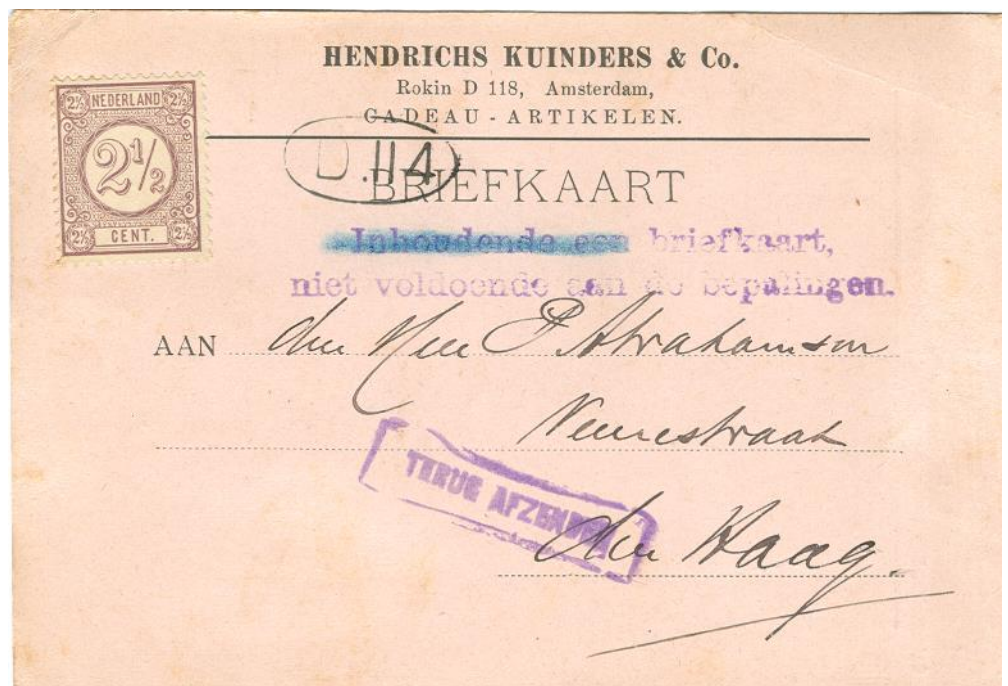 HENDRICHS KUINDERS & Co.
Rokin D 118, Amsterdam,
CADEAU - ARTIKELEN.
2½ NEDERLAND 2½
2½
2½ CENT. 2½
D.114
BRIEFKAART
Inhoudende een briefkaart,
niet voldoende aan de bepalingen.
AAN den Heer P. Abrahamson
Veenestraat
TERUG AFZENDER
den Haag.